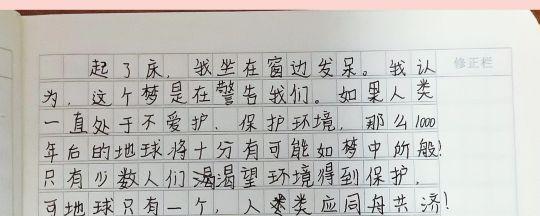 起了床，我坐在窗边发呆。我认
修正栏
为，这个梦是在警告我们。如果人类
一直处于不爱护、保护环境，那么1000
年后的地球将十分有可能如梦中所般！
只有少数人们渴渴望环境得到保护，
可地球只有一个，人类类应同舟共济！